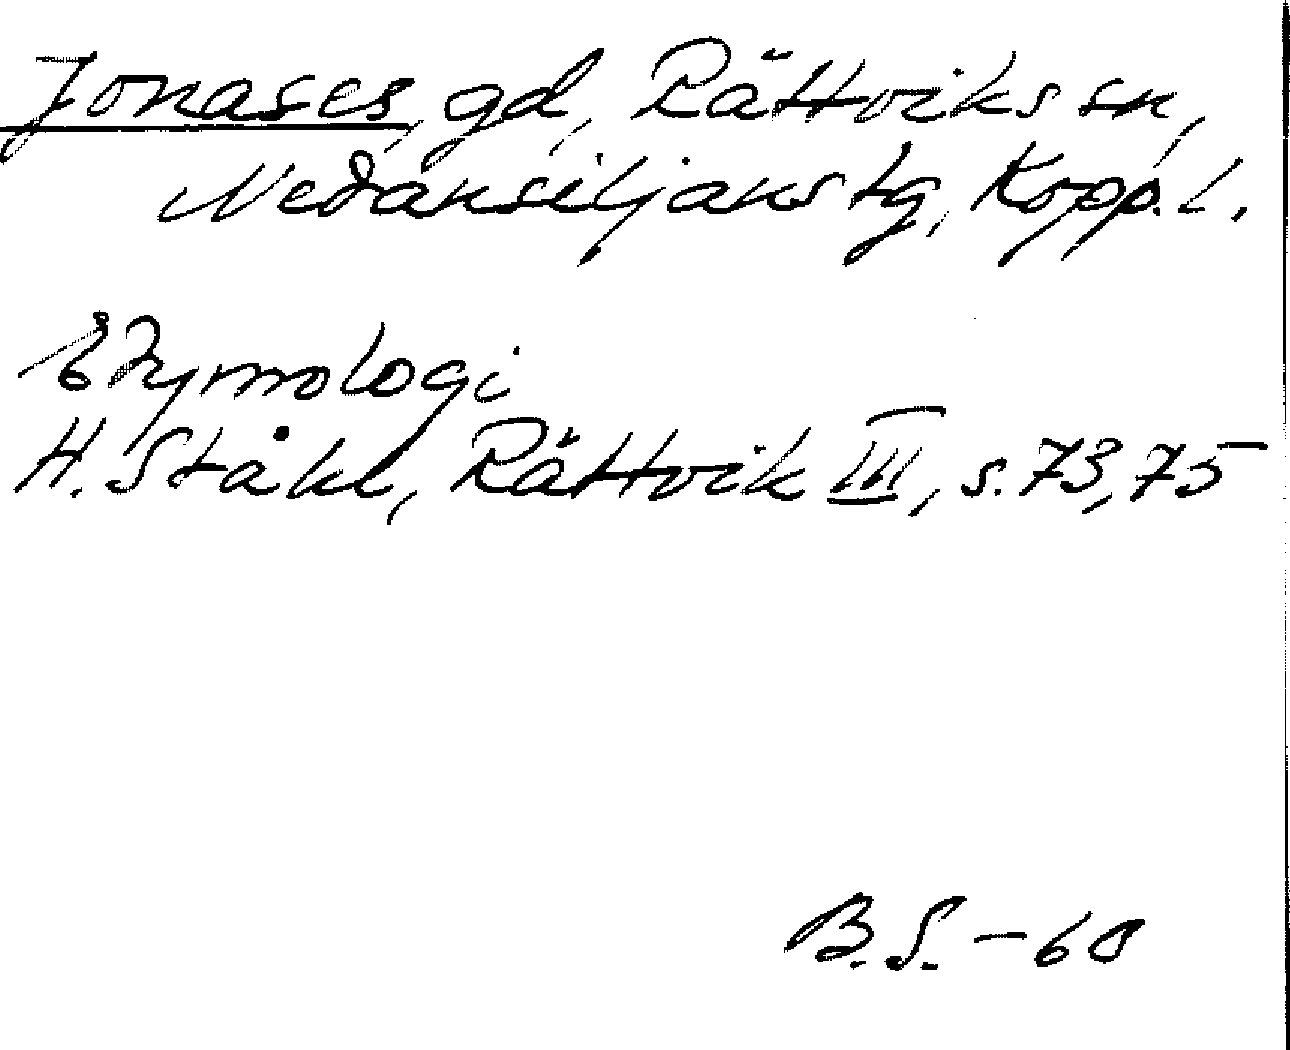 Jonases, gd, Rättviks sn,
Nedansiljans tg, Kopp. l.
Etymologi
H. Ståhl, Rättvik III, s. 73, 75
B.S. - 60